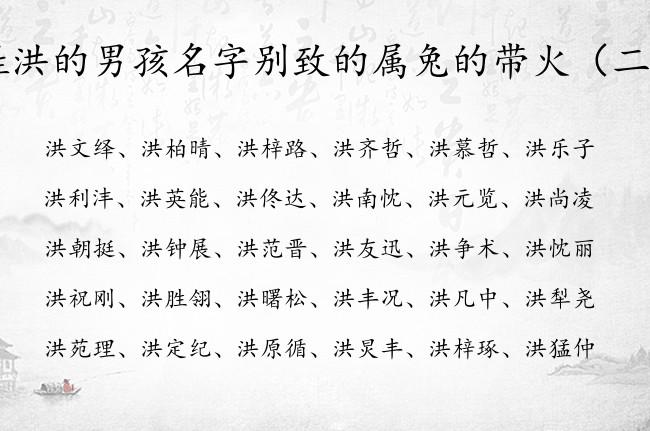 洪的男孩名字别致的属兔的带火（二
洪文绎、洪柏晴、洪梓路、洪齐哲、洪慕哲、洪乐子
洪利沣、洪英能、洪佟达、洪南忱、洪元览、洪尚凌
洪朝挺、洪钟展、洪范晋、洪友迅、洪争术、洪忱丽
洪祝刚、洪胜翎、洪曙松、洪丰况、洪凡中、洪犁尧
洪苑理、洪定纪、洪原循、洪炅丰、洪梓琢、洪猛仲